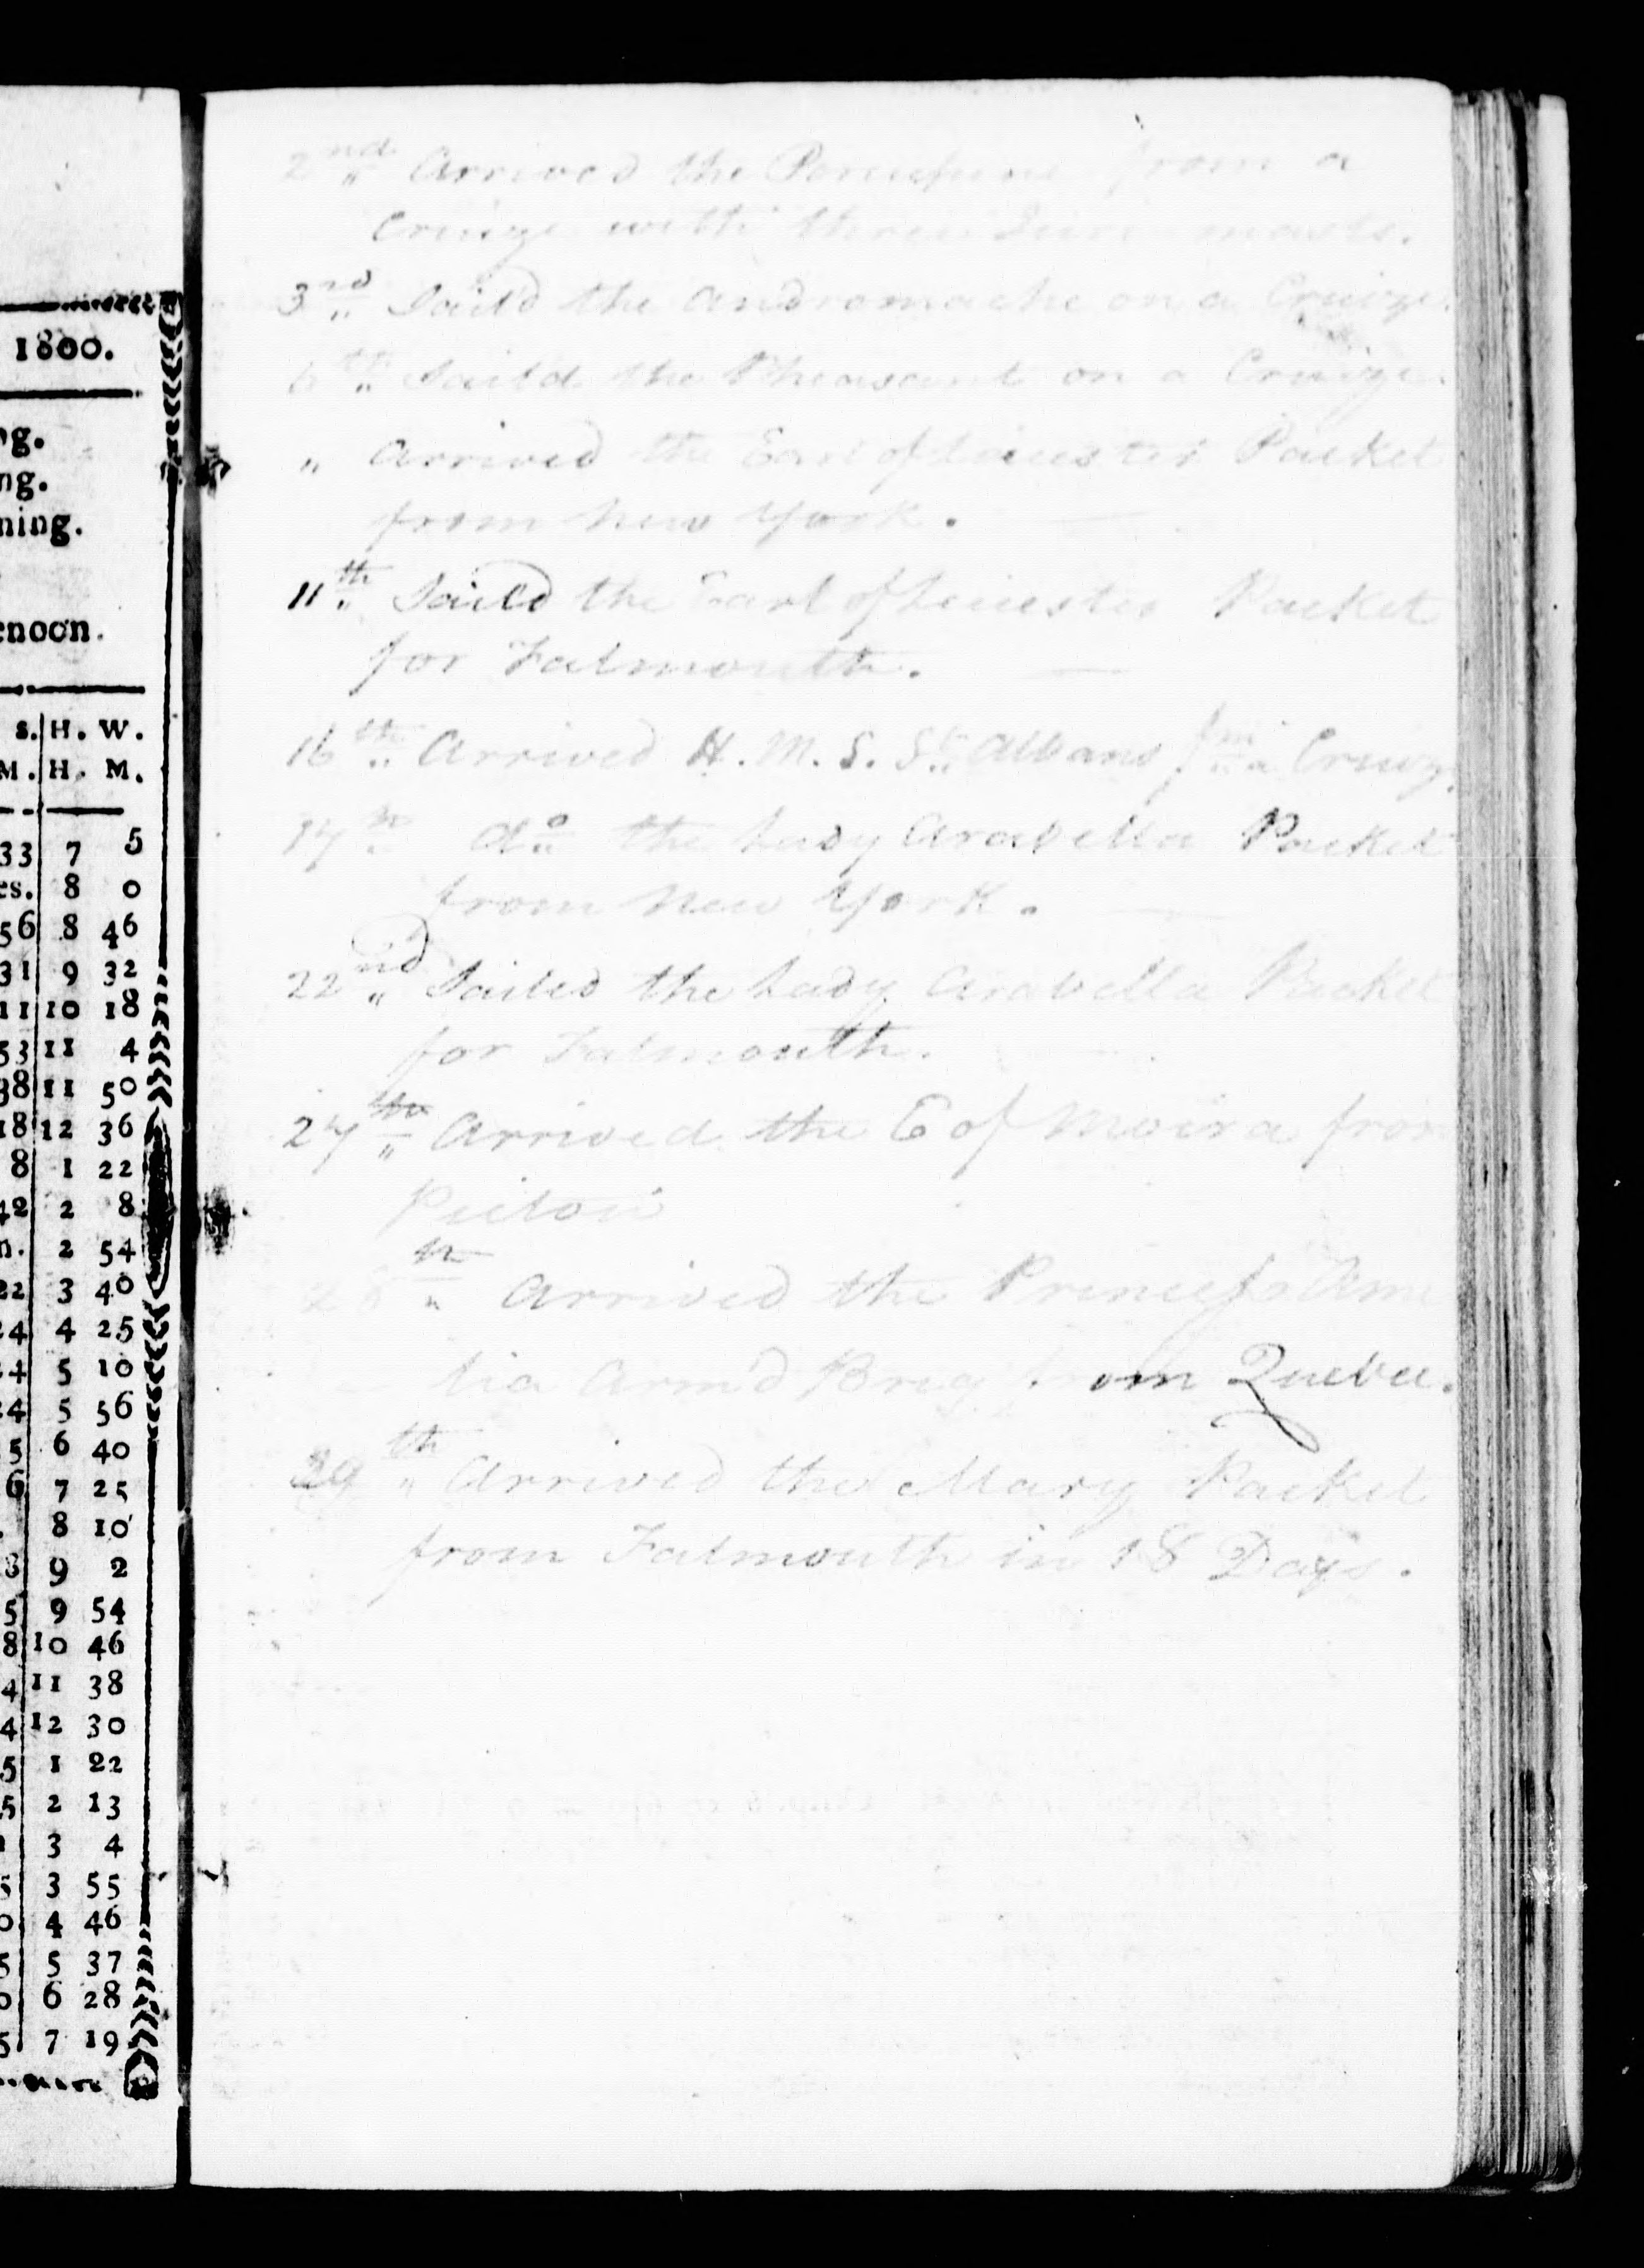 1800.
ng.
ng.
ning.
enoon.
S. H. W.
M. H. M.
33 7 5
es. 8 0
56 8 46
31 9 32
11 10 18
53 11 4
38 11 50
18 12 36
8 1 22
42 2 8
n. 2 54
22 3 40
24 4 25
24 5 10
24 5 56
5 6 40
6 7 25
8 10
8 9 2
5 9 54
8 10 46
4 11 38
4 12 30
5 1 22
5 2 13
3 4
5 3 55
0 4 46
5 5 37
0 6 28
5 7 19
2nd Arrived the from a
Cruize with three masts.
3rd Sail'd the Andromache on a Cruize.
6th Saild the Pheasant on a Cruize.
" Arrived the Earl of Leicester Packet
from New York.
11th Sail'd the Earl of Leicester Packet
for Falmouth.
16th Arrived H. M. S. St Albans fm a Cruize
17th do the Lady Arabella Packet
from New York.
22nd Sailed the Lady Arabella Packet
for Falmouth.
27th Arrived the E of Moira from
Pictou
28th Arrived the Princess Ame
lia Arm'd Brig from Quebec.
29th Arrived the Mary Packet
from Falmouth in 18 Days.